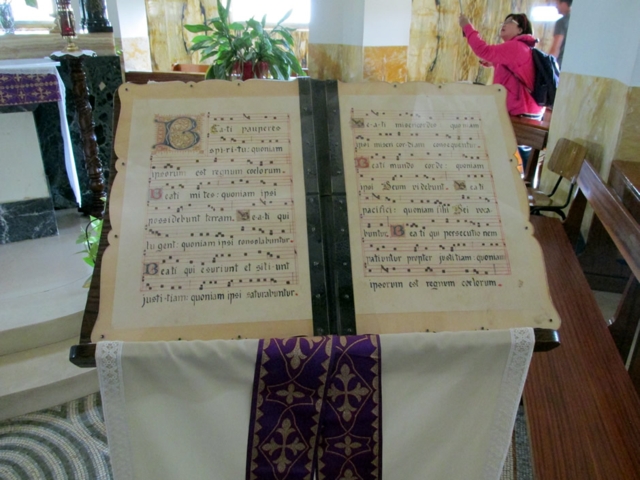 Beati pauperes
spiritu: quoniam
ipsorum est regnum coelorum.
Beati mites: quoniam ipsi
possidebunt terram. Beati qui
lugent: quoniam ipsi consolabuntur.
Beati qui esuriunt et sitiunt
justitiam: quoniam ipsi saturabuntur.
Beati misericordes quoniam
ipsi misericordiam consequentur.
Beati mundo corde: quoniam
ipsi Deum videbunt. Beati
pacifici: quoniam filii Dei voca
buntur. Beati qui persecutionem
patiuntur propter justitiam: quoniam
ipsorum est regnum coelorum.